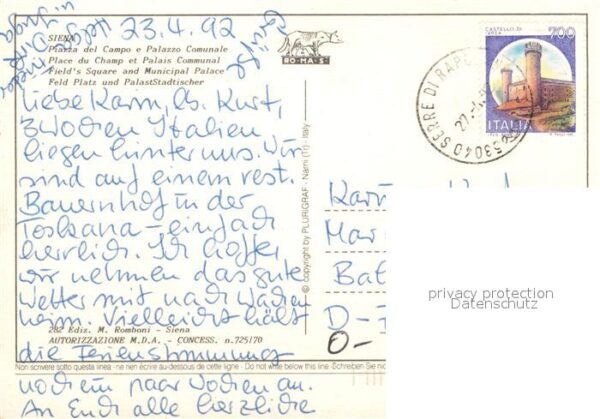 23.4.92
SIENA
Piazza del Campo e Palazzo Comunale
Place du Champ et Palais Communal
Field's Square and Municipal Palace
Feld Platz und PalastStadtischer
Liebe Karin, lb. Kurt,
2 Wochen Italien
liegen hinter uns. Wir
sind auf einem rest.
Bauernhof in der
Toskana - einfach
herrlich. Ich hoffe,
wir nehmen das gute
Wetter mit nach
heim. Vielleicht hält
282 Ediz. M. Romboni - Siena
AUTORIZZAZIONE M.D.A. - CONCESS. n.725170
die Ferienstimmung
Non scrivere sotto questa linea - ne rien écrire au-dessous de cette ligne - Do not write below this line - Schreiben Sie nicht
noch ein paar Wochen an.
An Euch alle herzliche
Grüße
RO-MA-S
© copyright by PLURIGRAF - Narni (Tr) - Italy
CASTELLO DI
IVREA
700
ITALIA
53040 SERRE DI RAPO
Mar
Bal
D-
privacy protection
Datenschutz